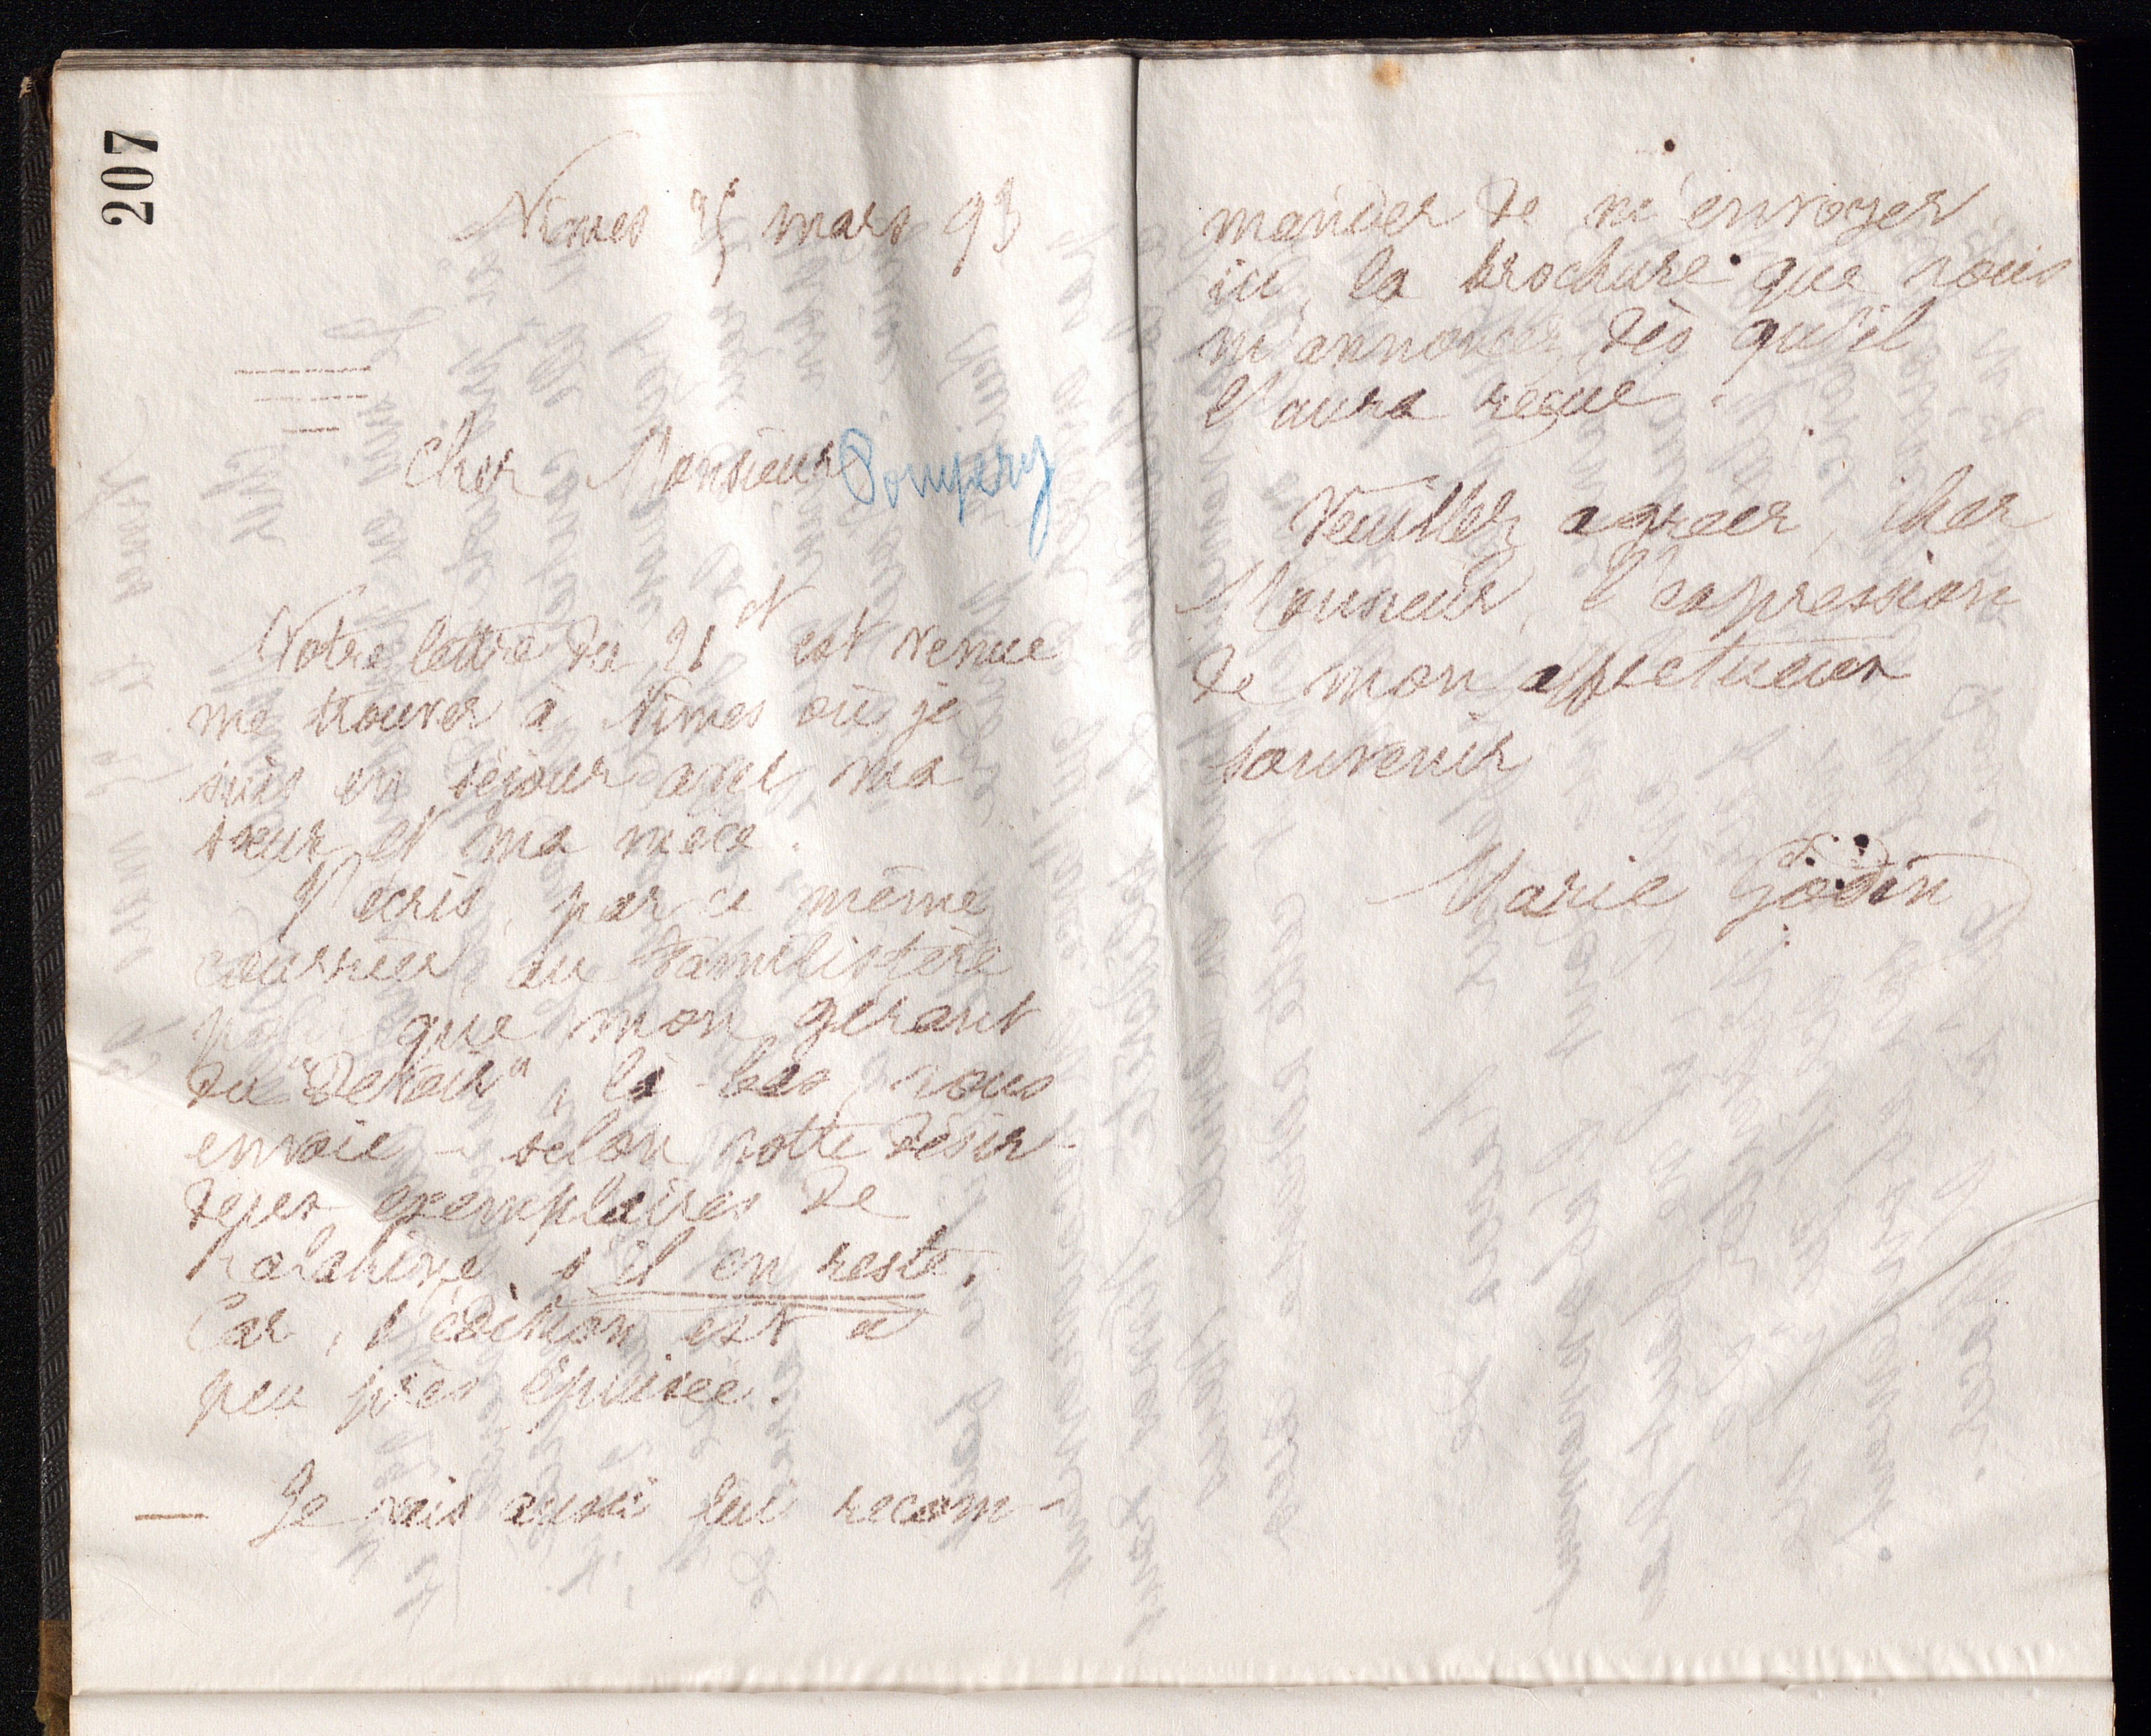 207
Nîmes 25 mars 93
Cher Monsieur Pompery
Votre lettre du 21 ct est venue
me trouver à Nîmes où je
suis en séjour avec ma
sœur et ma nièce.
J'écris, par ce même
courrier, au Familistère
pour que mon gérant
du "Devoir", là-bas, vous
envoie - selon votre désir -
exemplaires de
s'il en reste.
Car, l'édition est à
peu près épuisée.
— Je vais aussi lui recom-
mander de m'envoyer
ici, la brochure que vous
m'annoncez, dès qu'il
l'aura reçue.
Veuillez agréer, cher
Monsieur, l'expression
de mon affectueux
souvenir
Marie Godin